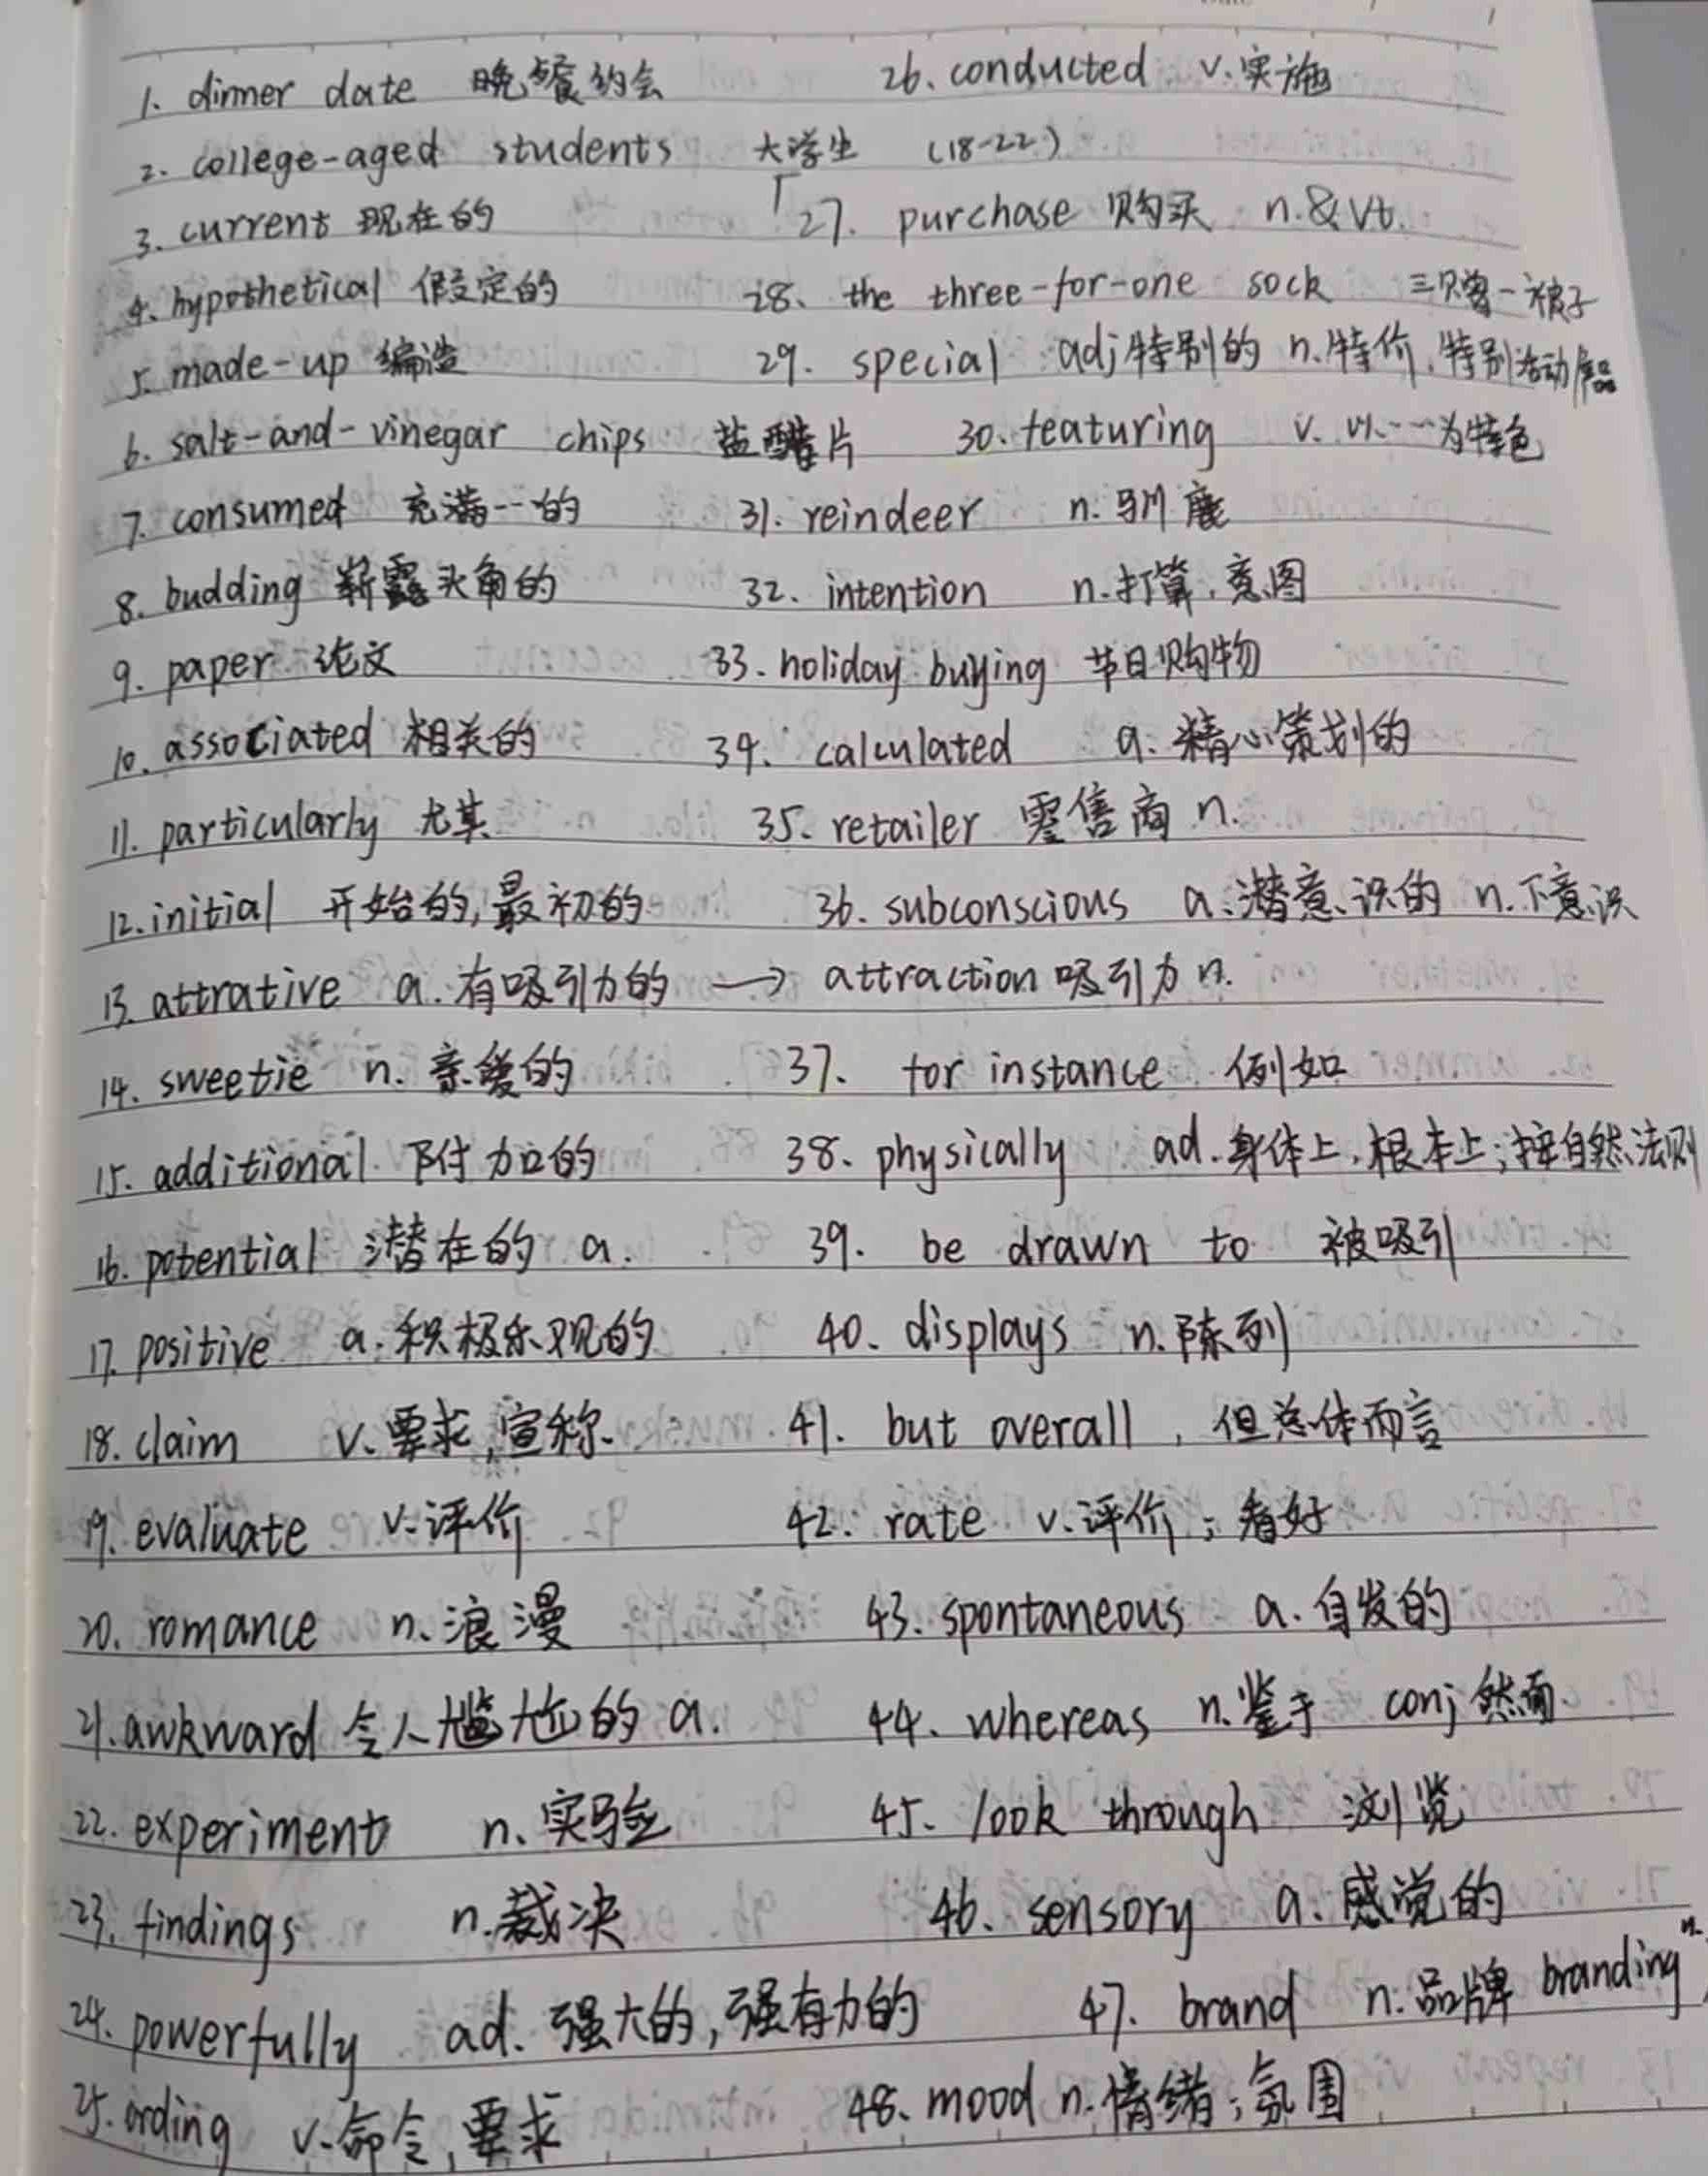 1. dinner date 晚餐约会
2. college-aged students 大学生 (18-22)
3. current 现在的
4. hypothetical 假定的
5. made-up 编造
6. salt-and-vinegar chips 盐醋片
7. consumed 充满…的
8. budding 崭露头角的
9. paper 论文
10. associated 相关的
11. particularly 尤其
12. initial 开始的,最初的
13. attrative a. 有吸引力的 → attraction 吸引力 n.
14. sweetie n. 亲爱的
15. additional 附加的
16. potential 潜在的 a.
17. positive a. 积极乐观的
18. claim v. 要求,宣称
19. evaluate v. 评价
20. romance n. 浪漫
21. awkward 令人尴尬的 a.
22. experiment n. 实验
23. findings n. 裁决
24. powerfully ad. 强大的,强有力的
25. ording v. 命令,要求
26. conducted v. 实施
27. purchase 购买 n.&vt.
28. the three-for-one sock 三赠一袜子
29. special adj 特别的 n. 特价,特别活动
30. featuring v. 以…为特色
31. reindeer n. 驯鹿
32. intention n. 打算,意图
33. holiday buying 节日购物
34. calculated a. 精心策划的
35. retailer 零售商 n.
36. subconscious a. 潜意识的 n. 下意识
37. for instance 例如
38. physically ad. 身体上,根本上;按自然法则
39. be drawn to 被吸引
40. displays n. 陈列
41. but overall, 但总体而言
42. rate v. 评价;看好
43. spontaneous a. 自发的
44. whereas n. 鉴于 conj 然而
45. look through 浏览
46. sensory a. 感觉的
47. brand n. 品牌 branding n.
48. mood n. 情绪;氛围